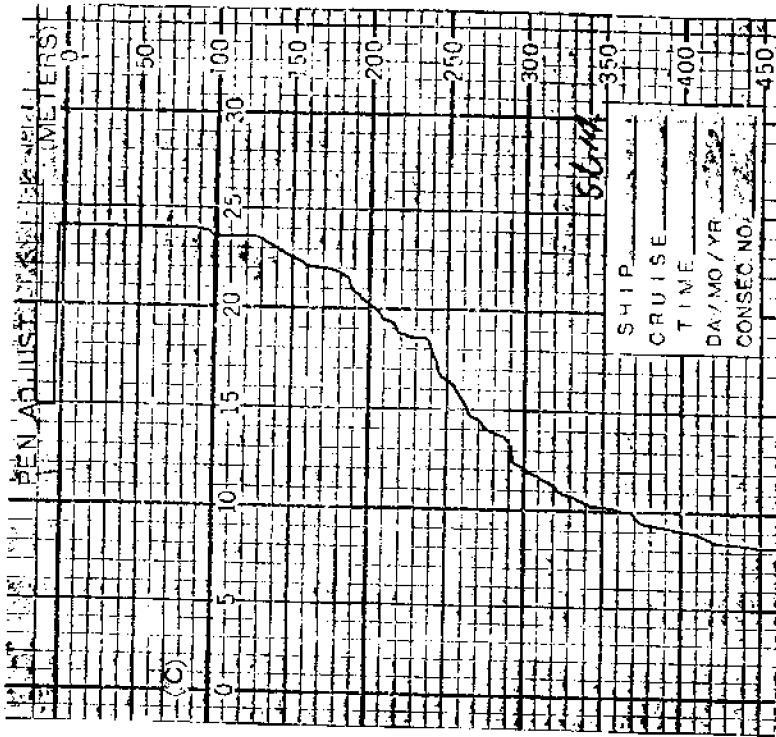 PEN ADJUST
(METERS)
0
50
100
150
200
250
300
350
400
450
30
25
20
15
10
5
0
(C)
SHIP
CRUISE
TIME
DA/MO/YR
CONSEC. NO.